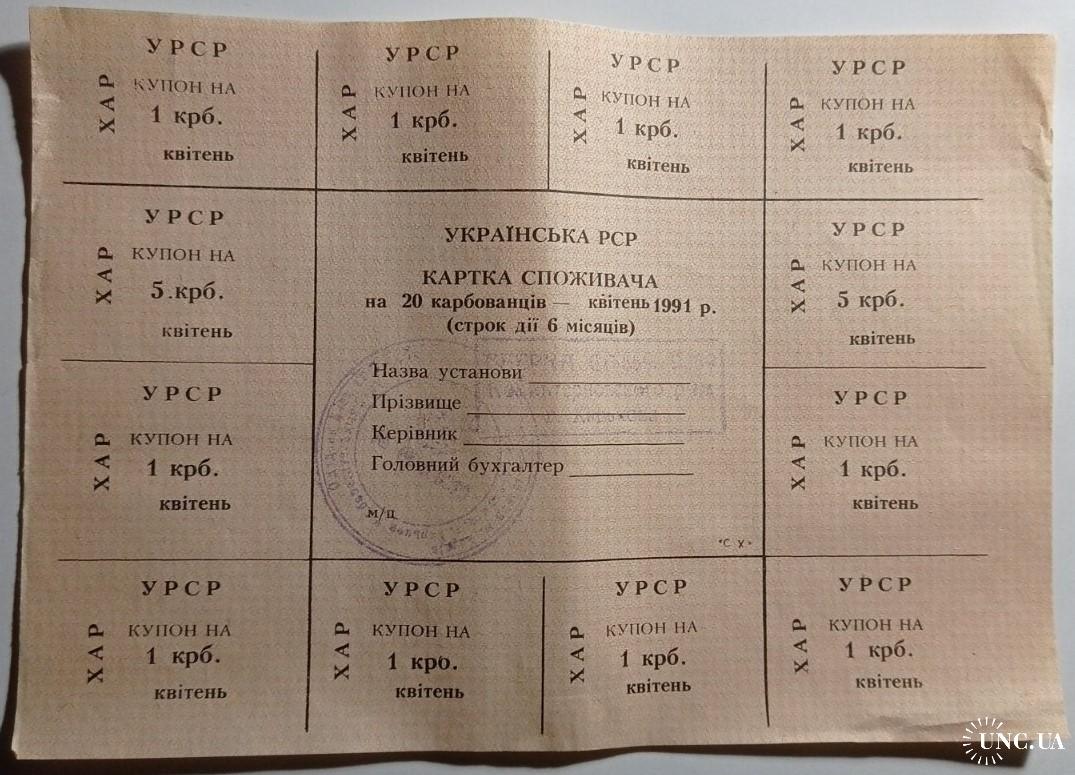 УРСР
ХАР
КУПОН НА
1 крб.
квітень
УРСР
ХАР
КУПОН НА
1 крб.
квітень
УРСР
ХАР
КУПОН НА
1 крб.
квітень
УРСР
ХАР
КУПОН НА
1 крб.
квітень
УРСР
ХАР
КУПОН НА
5.крб.
квітень
УКРАЇНСЬКА РСР
КАРТКА СПОЖИВАЧА
на 20 карбованців — квітень 1991 р.
(строк дії 6 місяців)
Назва установи
Прізвище
Керівник
Головний бухгалтер
м/п
"С Х"
УРСР
ХАР
КУПОН НА
5 крб.
квітень
УРСР
ХАР
КУПОН НА
1 крб.
квітень
УРСР
ХАР
КУПОН НА
1 крб.
квітень
УРСР
ХАР
КУПОН НА
1 крб.
квітень
УРСР
ХАР
КУПОН НА
1 крб.
квітень
УРСР
ХАР
КУПОН НА
1 крб.
квітень
УРСР
ХАР
КУПОН НА
1 крб.
квітень
UNC.UA